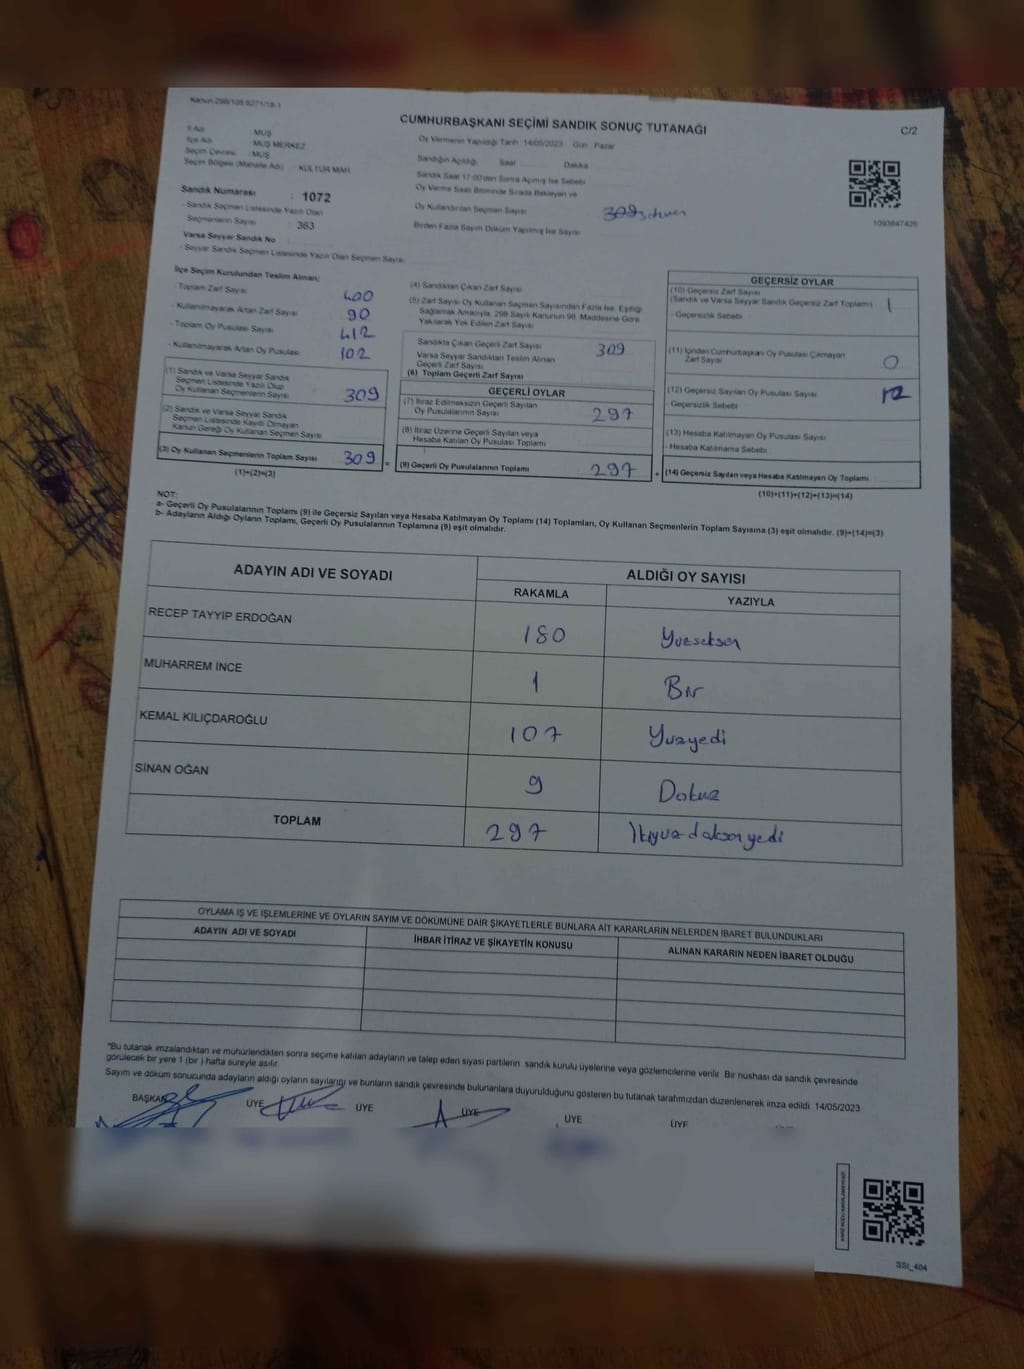 Kanun 298/105,6271/18-1
CUMHURBAŞKANI SEÇİMİ SANDIK SONUÇ TUTANAĞI
C/2
İl Adı MUŞ
İlçe Adı MUŞ MERKEZ
Seçim Çevresi : MUŞ
Seçim Bölgesi (Mahalle Adı) KÜLTÜR MAH
Oy Vermenin Yapıldığı Tarih :14/05/2023 Gün Pazar
Sandığın Açıldığı Saat Dakika
Sandık Saat 17:00'den Sonra Açılmış İse Sebebi
Oy Verme Saati Bitiminde Sırada Bekleyen ve
Oy Kullandırılan Seçmen Sayısı
Birden Fazla Sayım Döküm Yapılmış İse Sayısı
Sandık Numarası : 1072
- Sandık Seçmen Listesinde Yazılı Olan
Seçmenlerin Sayısı : 363
Varsa Seyyar Sandık No
- Seyyar Sandık Seçmen Listesinde Yazılı Olan Seçmen Sayısı
1093847426
İlçe Seçim Kurulundan Teslim Alınan;
- Toplam Zarf Sayısı 400
- Kullanılmayarak Artan Zarf Sayısı 90
- Toplam Oy Pusulası Sayısı 412
- Kullanılmayarak Artan Oy Pusulası 102
(1) Sandık ve Varsa Seyyar Sandık
Seçmen Listesinde Yazılı Olup
Oy Kullanan Seçmenlerin Sayısı 309
(2) Sandık ve Varsa Seyyar Sandık
Seçmen Listesinde Kayıtlı Olmayan
Kanun Gereği Oy Kullanan Seçmen Sayısı
(3) Oy Kullanan Seçmenlerin Toplam Sayısı 309 =
(1)+(2)=(3)
(4) Sandıktan Çıkan Zarf Sayısı
(5) Zarf Sayısı Oy Kullanan Seçmen Sayısından Fazla İse, Eşitliği
Sağlamak Amacıyla, 298 Sayılı Kanunun 98. Maddesine Göre
Yakılarak Yok Edilen Zarf Sayısı
Sandıkta Çıkan Geçerli Zarf Sayısı 309
Varsa Seyyar Sandıktan Teslim Alınan
Geçerli Zarf Sayısı
(6) Toplam Geçerli Zarf Sayısı
GEÇERLİ OYLAR
(7) İtiraz Edilmeksizin Geçerli Sayılan
Oy Pusulalarının Sayısı 297
(8) İtiraz Üzerine Geçerli Sayılan veya
Hesaba Katılan Oy Pusulası Toplamı
(9) Geçerli Oy Pusulalarının Toplamı 297 +
GEÇERSİZ OYLAR
(10) Geçersiz Zarf Sayısı
(Sandık ve Varsa Seyyar Sandık Geçersiz Zarf Toplamı) 1
- Geçersizlik Sebebi
(11) İçinden Cumhurbaşkanı Oy Pusulası Çıkmayan
Zarf Sayısı 0
(12) Geçersiz Sayılan Oy Pusulası Sayısı 12
- Geçersizlik Sebebi
(13) Hesaba Katılmayan Oy Pusulası Sayısı
- Hesaba Katılmama Sebebi
(14) Geçersiz Sayılan veya Hesaba Katılmayan Oy Toplamı
(10)+(11)+(12)+(13)=(14)
NOT:
a- Geçerli Oy Pusulalarının Toplamı (9) ile Geçersiz Sayılan veya Hesaba Katılmayan Oy Toplamı (14) Toplamları, Oy Kullanan Seçmenlerin Toplam Sayısına (3) eşit olmalıdır. (9)+(14)=(3)
b- Adayların Aldığı Oyların Toplamı, Geçerli Oy Pusulalarının Toplamına (9) eşit olmalıdır.
ADAYIN ADI VE SOYADI ALDIĞI OY SAYISI
RAKAMLA YAZIYLA
RECEP TAYYİP ERDOĞAN 180 Yuzseksen
MUHARREM İNCE 1 Bir
KEMAL KILIÇDAROĞLU 107 Yuzyedi
SİNAN OĞAN 9 Dokuz
TOPLAM 297 İkiyuz doksan yedi
OYLAMA İŞ VE İŞLEMLERİNE VE OYLARIN SAYIM VE DÖKÜMÜNE DAİR ŞİKAYETLERLE BUNLARA AİT KARARLARIN NELERDEN İBARET BULUNDUKLARI
ADAYIN ADI VE SOYADI İHBAR İTİRAZ VE ŞİKAYETİN KONUSU ALINAN KARARIN NEDEN İBARET OLDUĞU
*Bu tutanak imzalandıktan ve mühürlendikten sonra seçime katılan adayların ve talep eden siyasi partilerin sandık kurulu üyelerine veya gözlemcilerine verilir. Bir nüshası da sandık çevresinde
görülecek bir yere 1 (bir ) hafta süreyle asılır.
Sayım ve döküm sonucunda adayların aldığı oyların sayılarını ve bunların sandık çevresinde bulunanlara duyurulduğunu gösteren bu tutanak tarafımızdan düzenlenerek imza edildi. 14/05/2023
BAŞKAN ÜYE ÜYE ÜYE ÜYE ÜYE
SSI_404